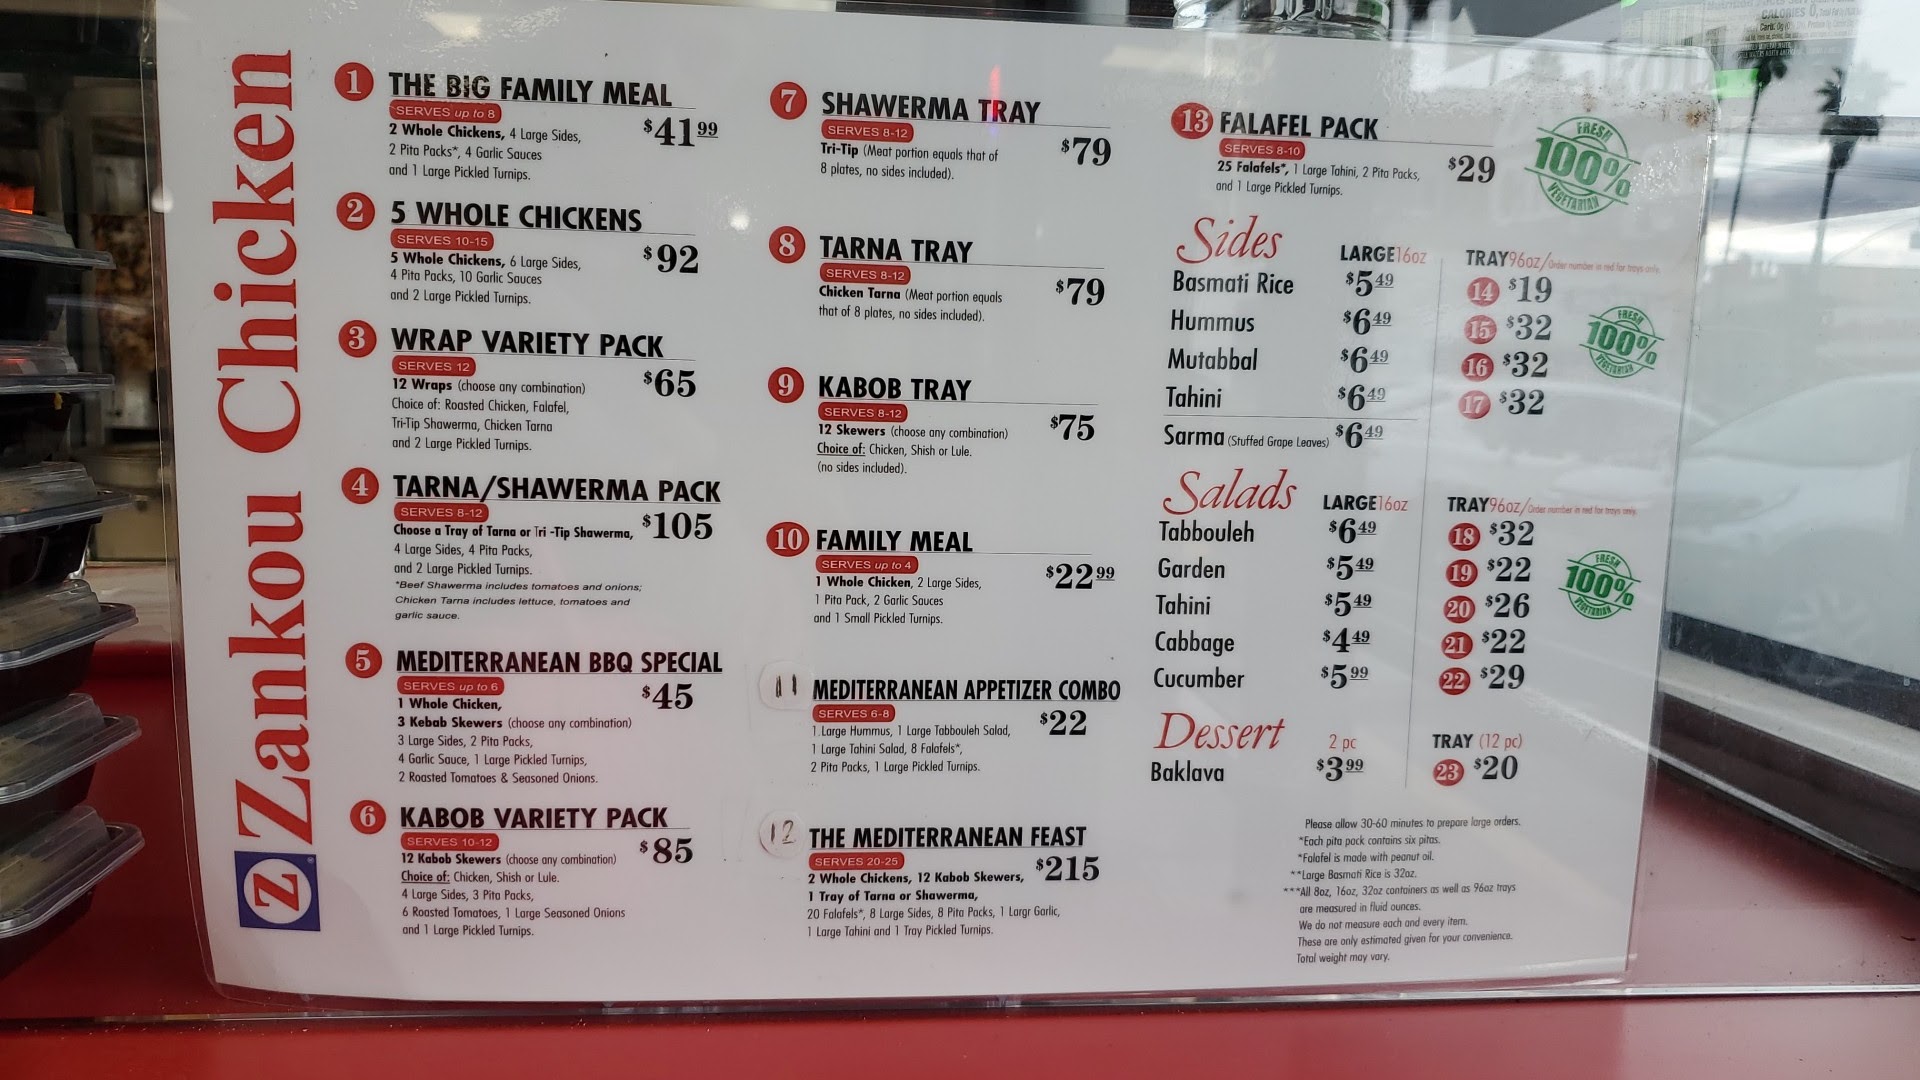 Zankou Chicken
Z
1 THE BIG FAMILY MEAL
SERVES up to 8
2 Whole Chickens, 4 Large Sides, $41.99
2 Pita Packs*, 4 Garlic Sauces
and 1 Large Pickled Turnips.
2 5 WHOLE CHICKENS
SERVES 10-15
5 Whole Chickens, 6 Large Sides, $92
4 Pita Packs, 10 Garlic Sauces
and 2 Large Pickled Turnips.
3 WRAP VARIETY PACK
SERVES 12
12 Wraps (choose any combination) $65
Choice of: Roasted Chicken, Falafel,
Tri-Tip Shawerma, Chicken Tarna
and 2 Large Pickled Turnips.
4 TARNA/SHAWERMA PACK
SERVES 8-12
Choose a Tray of Tarna or Tri -Tip Shawerma, $105
4 Large Sides, 4 Pita Packs,
and 2 Large Pickled Turnips.
*Beef Shawerma includes tomatoes and onions;
Chicken Tarna includes lettuce, tomatoes and
garlic sauce.
5 MEDITERRANEAN BBQ SPECIAL
SERVES up to 6
1 Whole Chicken, $45
3 Kebab Skewers (choose any combination)
3 Large Sides, 2 Pita Packs,
4 Garlic Sauce, 1 Large Pickled Turnips,
2 Roasted Tomatoes & Seasoned Onions.
6 KABOB VARIETY PACK
SERVES 10-12
12 Kabob Skewers (choose any combination) $85
Choice of: Chicken, Shish or Lule.
4 Large Sides, 3 Pita Packs,
6 Roasted Tomatoes, 1 Large Seasoned Onions
and 1 Large Pickled Turnips.
7 SHAWERMA TRAY
SERVES 8-12
Tri-Tip (Meat portion equals that of $79
8 plates, no sides included).
8 TARNA TRAY
SERVES 8-12
Chicken Tarna (Meat portion equals $79
that of 8 plates, no sides included).
9 KABOB TRAY
SERVES 8-12
12 Skewers (choose any combination) $75
Choice of: Chicken, Shish or Lule.
(no sides included).
10 FAMILY MEAL
SERVES up to 4
1 Whole Chicken, 2 Large Sides, $22.99
1 Pita Pack, 2 Garlic Sauces
and 1 Small Pickled Turnips.
11 MEDITERRANEAN APPETIZER COMBO
SERVES 6-8
1 Large Hummus, 1 Large Tabbouleh Salad, $22
1 Large Tahini Salad, 8 Falafels*,
2 Pita Packs, 1 Large Pickled Turnips.
12 THE MEDITERRANEAN FEAST
SERVES 20-25
2 Whole Chickens, 12 Kabob Skewers, $215
1 Tray of Tarna or Shawerma,
20 Falafels*, 8 Large Sides, 8 Pita Packs, 1 Largr Garlic,
1 Large Tahini and 1 Tray Pickled Turnips.
13 FALAFEL PACK
SERVES 8-10
25 Falafels*, 1 Large Tahini, 2 Pita Packs, $29
and 1 Large Pickled Turnips.
FRESH
100%
VEGETARIAN
Sides LARGE 16oz TRAY 96oz/Order number in red for trays only.
Basmati Rice $5.49 14 $19
Hummus $6.49 15 $32
Mutabbal $6.49 16 $32
Tahini $6.49 17 $32
Sarma (Stuffed Grape Leaves) $6.49
FRESH
100%
VEGETARIAN
Salads LARGE 16oz TRAY 96oz/Order number in red for trays only.
Tabbouleh $6.49 18 $32
Garden $5.49 19 $22
Tahini $5.49 20 $26
Cabbage $4.49 21 $22
Cucumber $5.99 22 $29
FRESH
100%
VEGETARIAN
Dessert 2 pc TRAY (12 pc)
Baklava $3.99 23 $20
Please allow 30-60 minutes to prepare large orders.
*Each pita pack contains six pitas.
*Falafel is made with peanut oil.
**Large Basmati Rice is 32oz.
***All 8oz, 16oz, 32oz containers as well as 96oz trays
are measured in fluid ounces.
We do not measure each and every item.
These are only estimated given for your convenience.
Total weight may vary.
CALORIES 0,